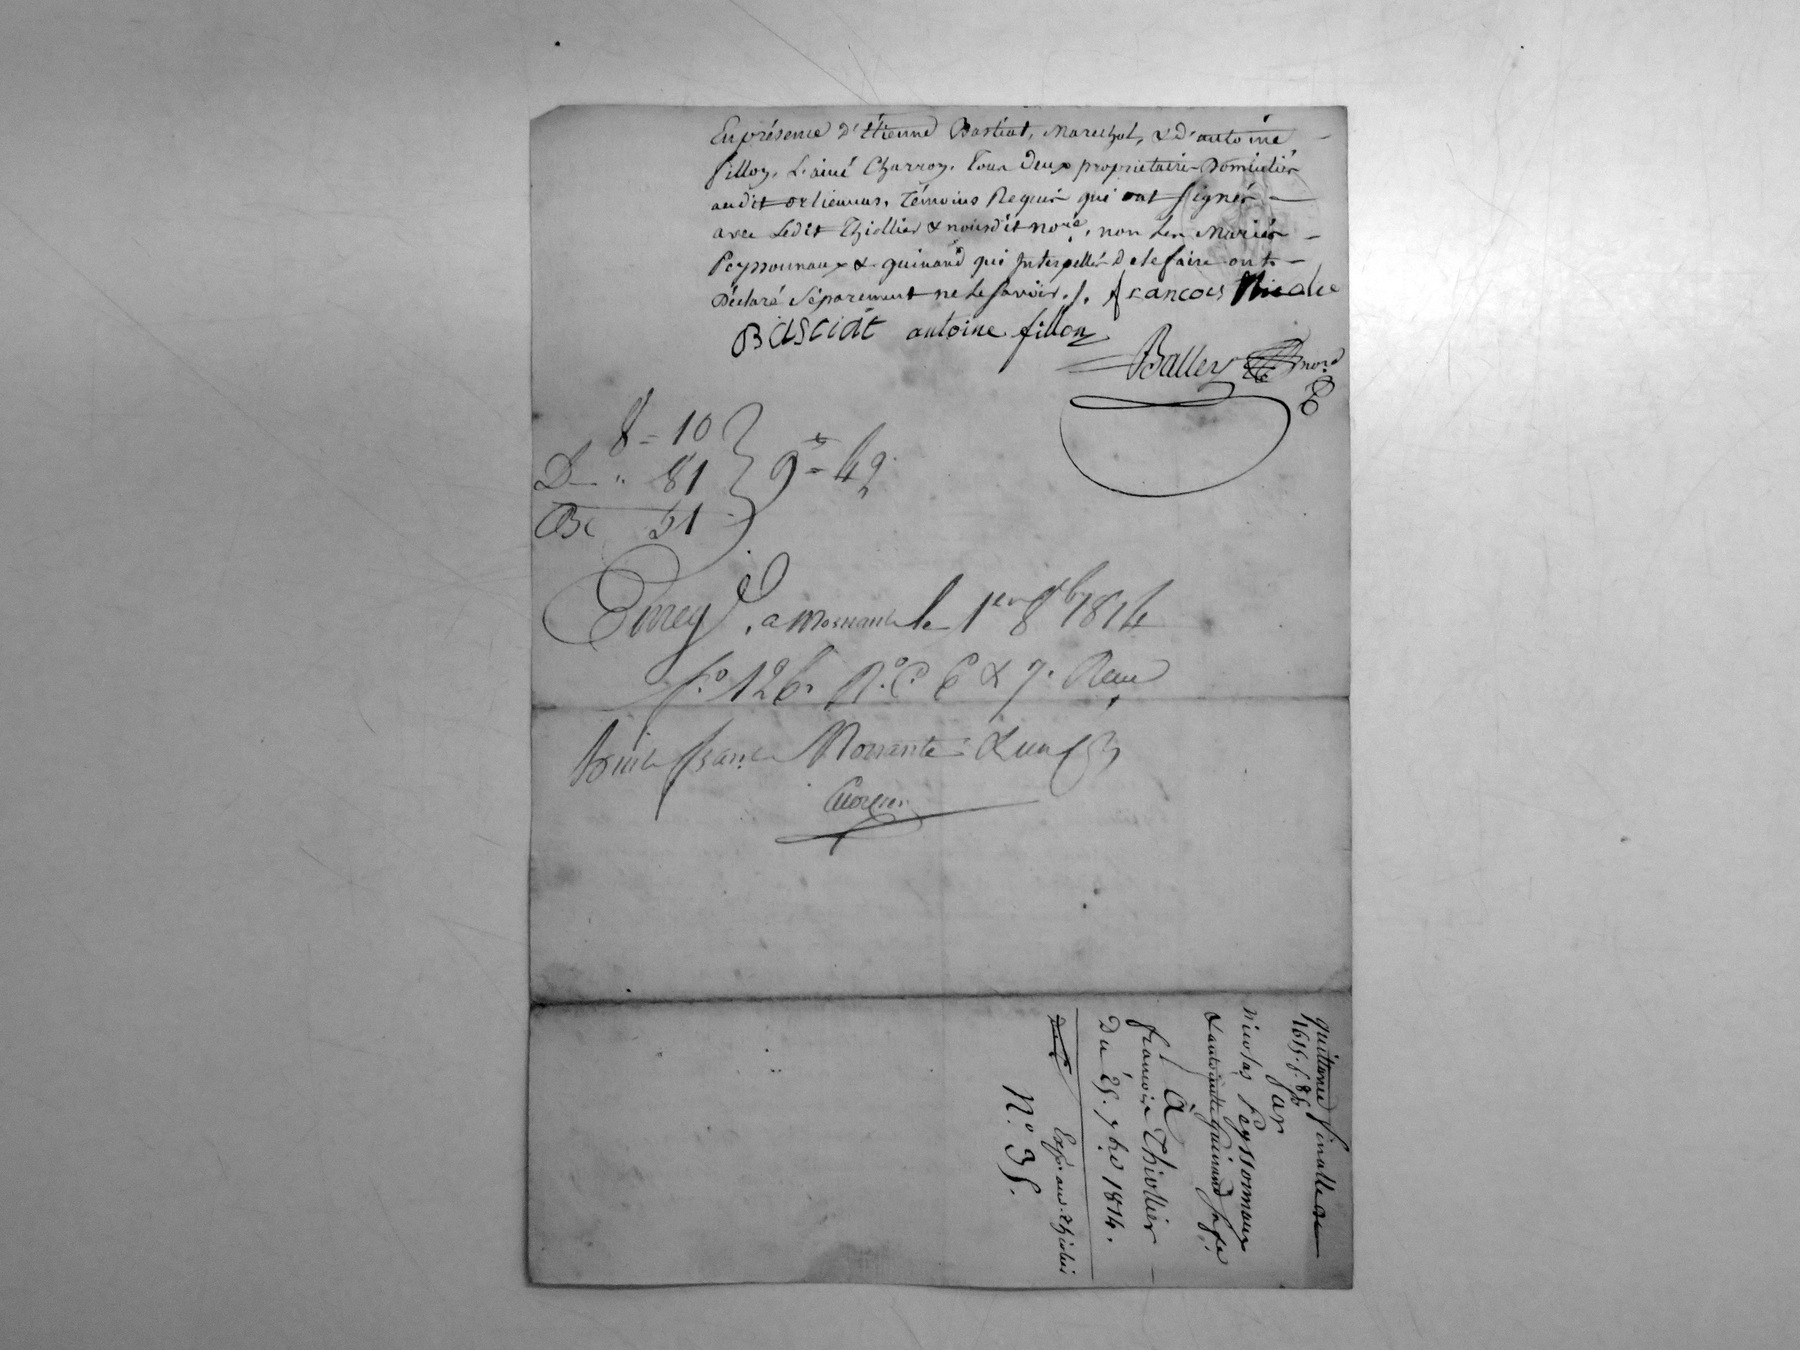 En présence d'étienne Bastiat, Marechal, & d'antoine
fillon, L'ainé Charron, Tous deux propriétaires Domiciliés
audit orlienus, Témoins Requis qui ont signés
avec Ledit Thiollier & nousdit noré, non Les Mariés
Peyssonnaux & guinand qui Interpellés de le faire ont
Déclaré séparement ne le savoir ./. francois
BASCIAT antoine fillon
Balley nore
8 = 10
D " 81
51
9 = 42
Enreg. a Mornant le 1er 8b 1814
fo 126 Ro C. 6 & 7. Reçu
huit francs
quittance finalle de
1615. f. 85
par
Nicolas Peyssonnaux
& antoinette guinand
à
francois Thiollier
Du 25. 7bre 1814.
Expé. aud. thiollier
N.° 35.